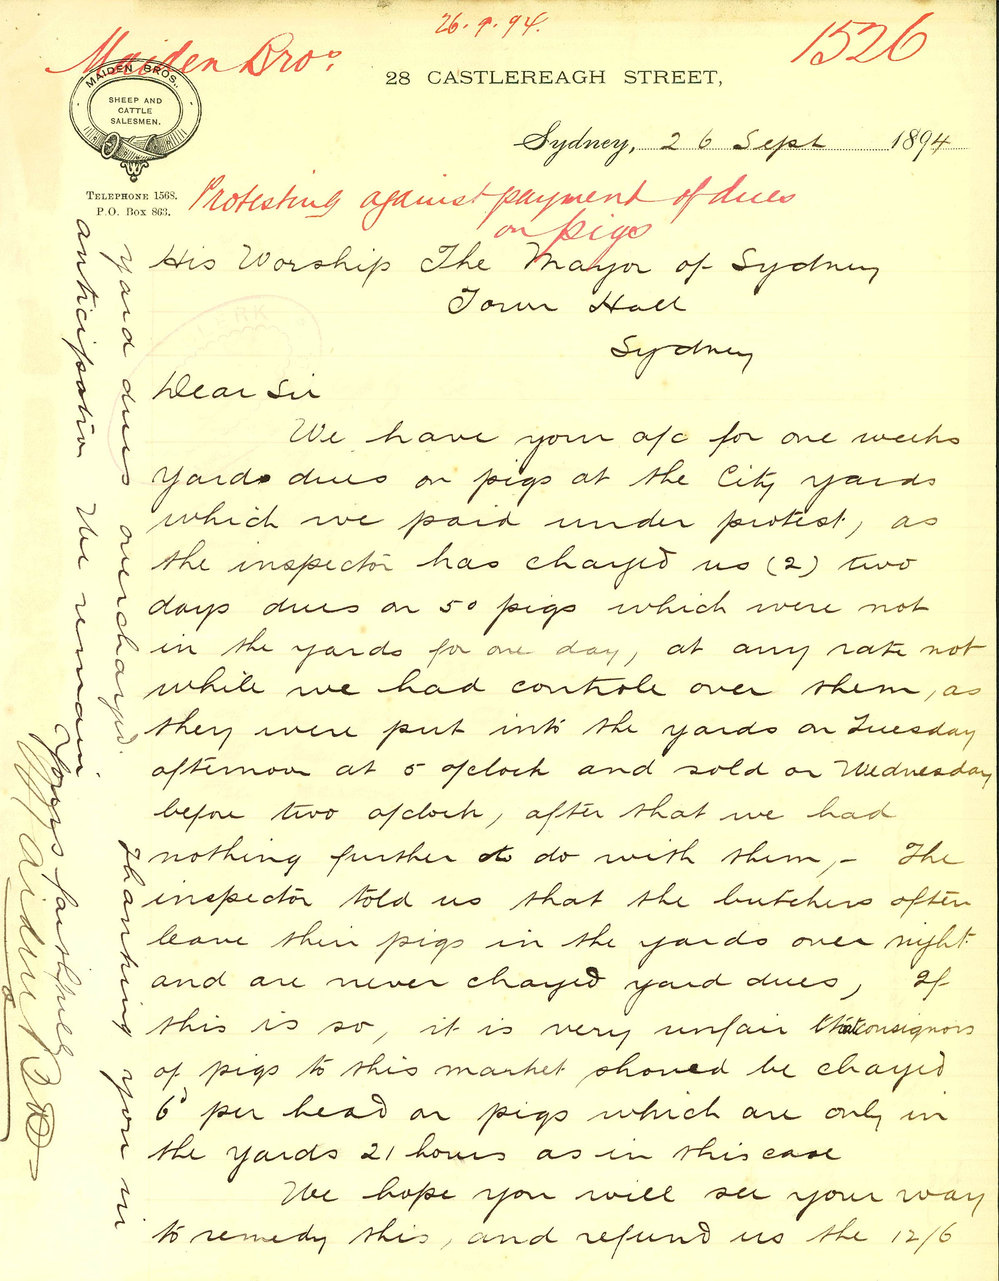 26.9.94.
Maiden Bros.
1526
MAIDEN BROS.,
SHEEP AND
CATTLE
SALESMEN.
28 CASTLEREAGH STREET,
Sydney, 26 Sept 1894
TELEPHONE 1568.
P.O. Box 863.
Protesting against payment of dues
on pigs
His Worship The Mayor of Sydney
Town Hall
Sydney
Dear Sir
We have your a/c for one weeks
Yards dues on pigs at the City yards
which we paid under protest, as
the inspector has charged us (2) two
days dues on 50 pigs which were not
in the yards for one day, at any rate not
while we had controle over them, as
they were put into the yards on Tuesday
afternoon at 5 o/clock and sold on Wednesday
before two o/clock, after that we had
nothing further to do with them,- The
inspector told us that the butchers often
leave their pigs in the yards over night
and are never charged yard dues, If
this is so, it is very unfair that consignors
of pigs to this market should be charged
6d per head on pigs which are only in
the yards 21 hours as in this case
We hope you will see your way
to remedy this, and refund us the 12/6
yard dues overcharged. Thanking you in
anticipation We remain
Yours faithfully
Maiden Bros
CLERK